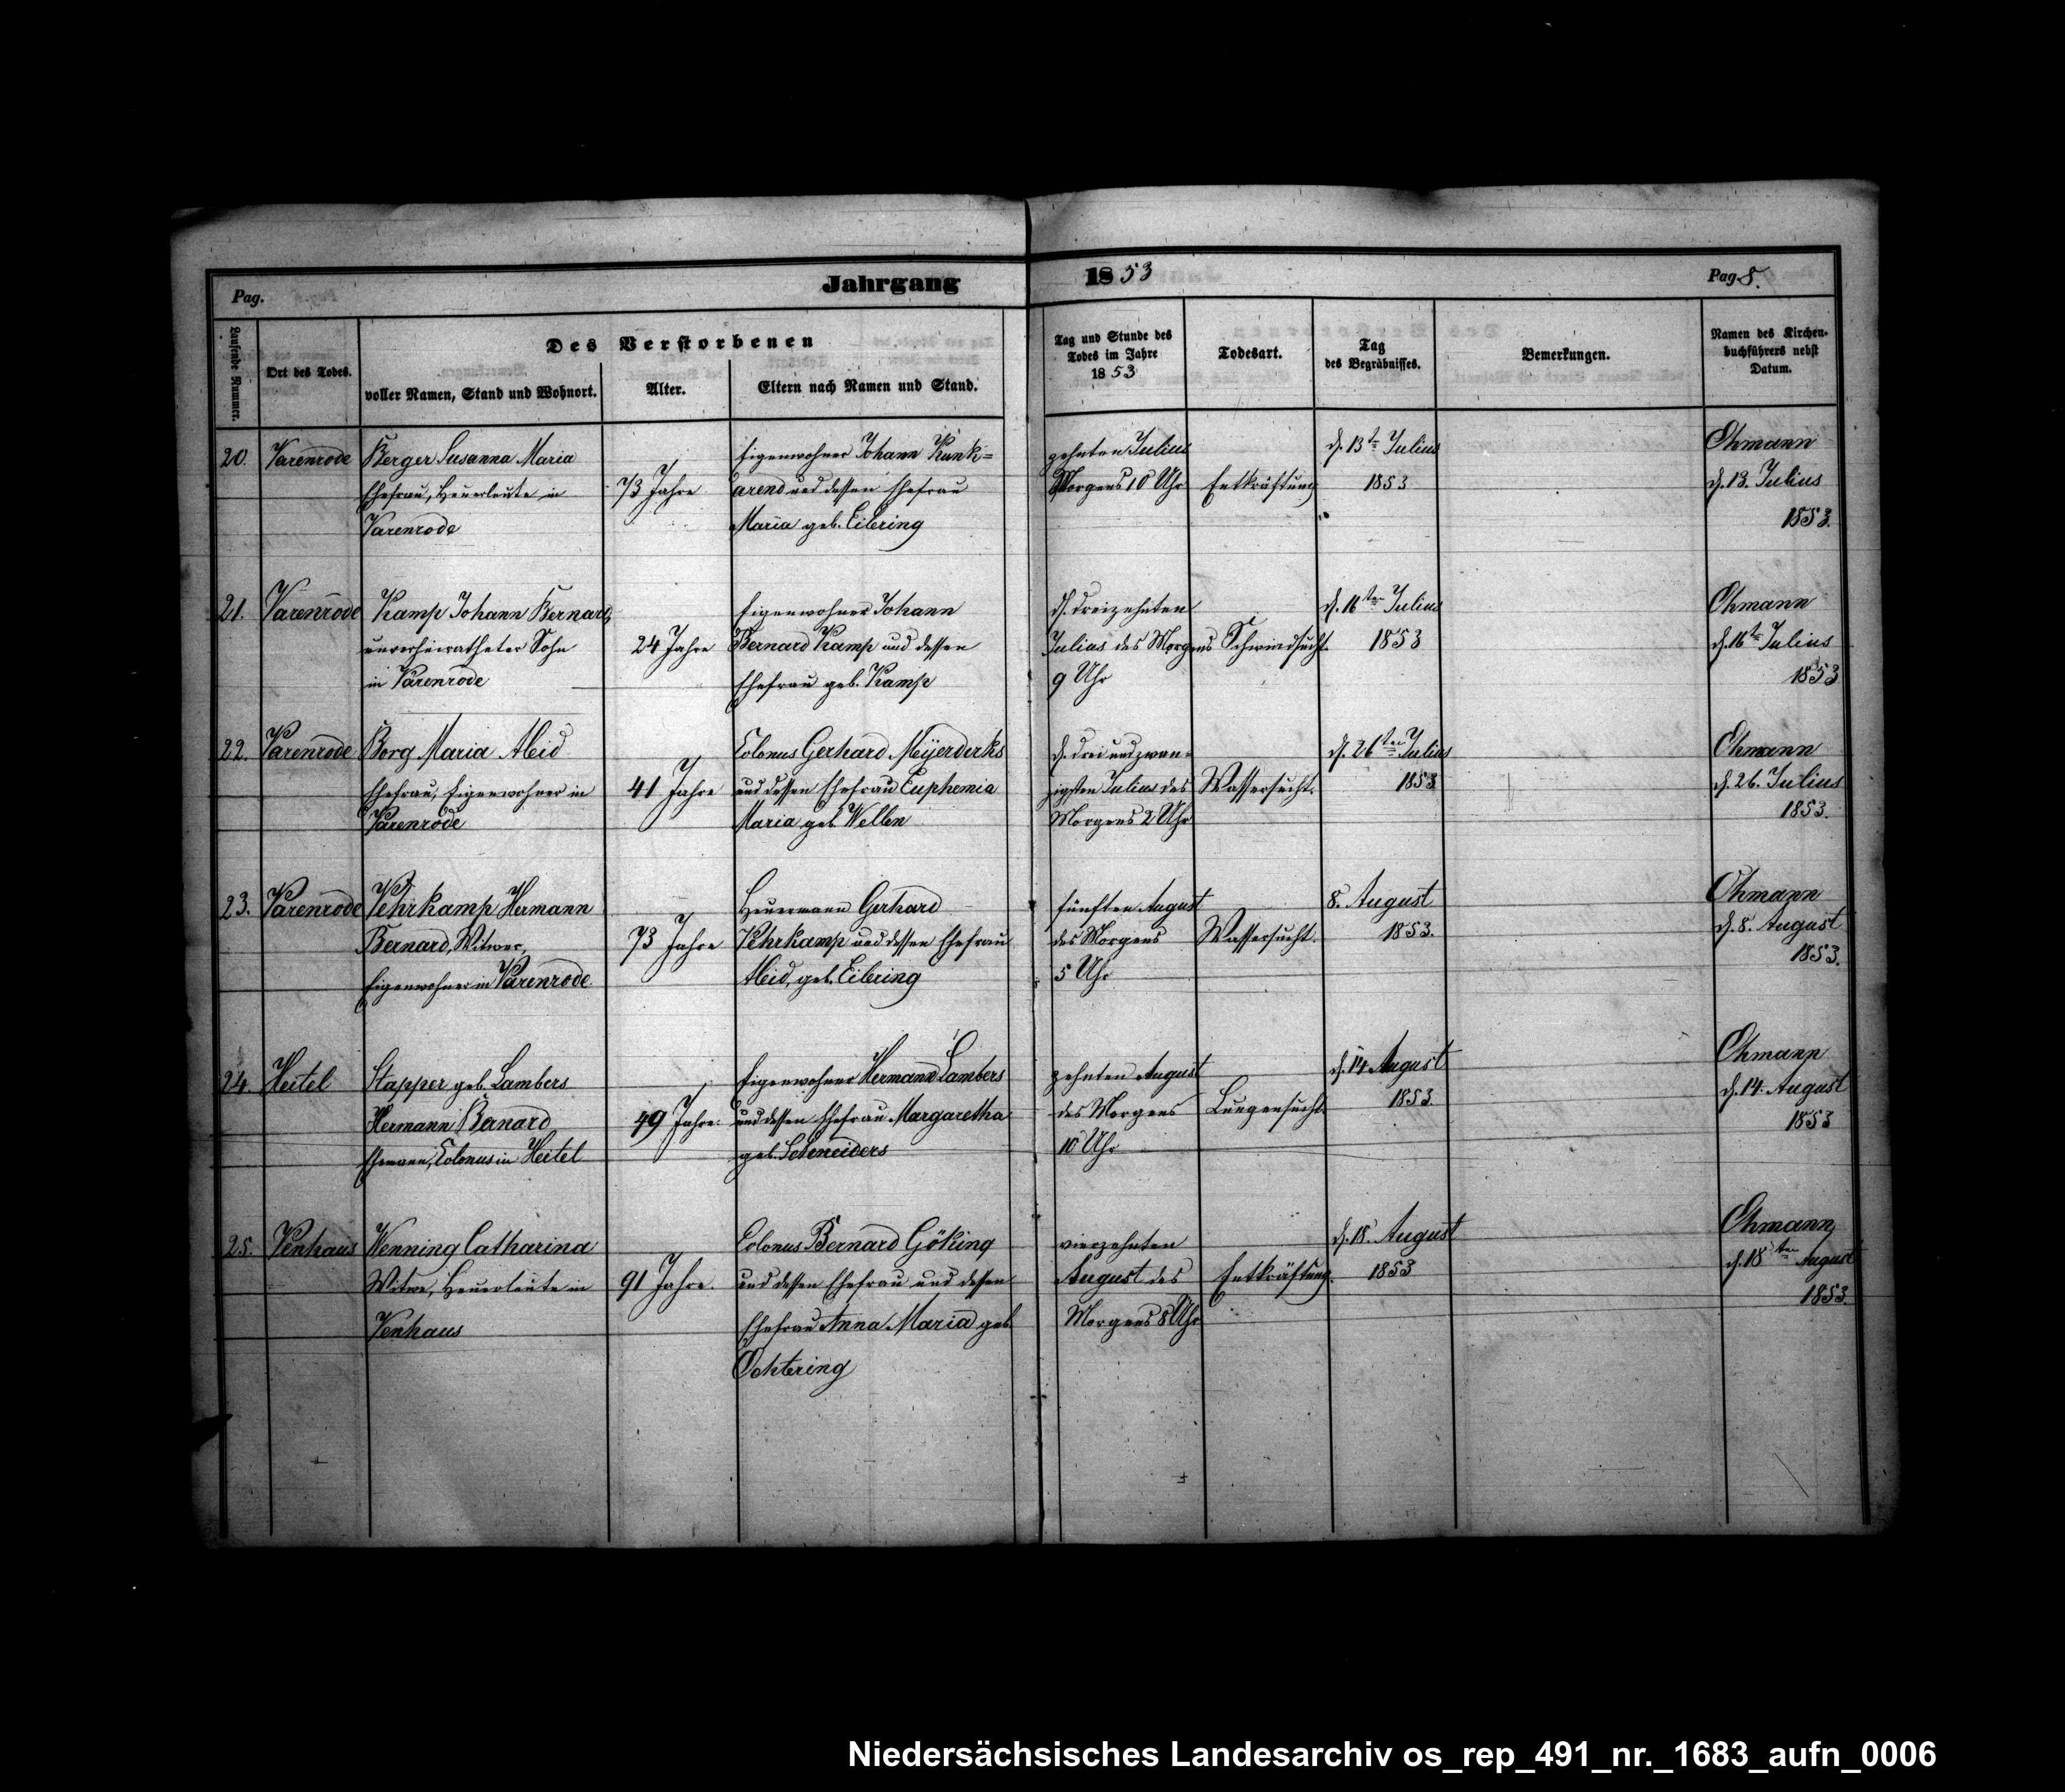 Pag.
Jahrgang 1853
Pag. 8.
Laufende Nummer.
Ort des Todes.
Des Verstorbenen
voller Namen, Stand und Wohnort.
Alter.
Eltern nach Namen und Stand.
Tag und Stunde des
Todes im Jahre
1853
Todesart.
Tag
des Begräbnisses.
Bemerkungen.
Namen des Kirchen-
buchführers nebst
Datum.
20.
Varenrode
Berger Susanna Maria
Ehefrau, Heuerleute in
Varenrode
73 Jahre
Eigenwohner Johann Kunk=
arend und dessen Ehefrau
Maria geb. Eilering
zehnten Julius
Morgens 10 Uhr
Entkräftung
d. 13t Julius
1853
Ohmann
d. 13. Julius
1853.
21.
Varenrode
Kamp Johann Bernard,
unverheiratheter Sohn
in Varenrode
24 Jahre
Eigenwohner Johann
Bernard Kamp und dessen
Ehefrau geb. Kamp
d. dreizehnten
Julius des Morgens
9 Uhr
Schwindsucht.
d. 16ten Julius
1853
Ohmann
d. 16t Julius
1853
22.
Varenrode
Borg Maria Aleid
Ehefrau, Eigenwohner in
Varenrode
41 Jahre
Colonus Gerhard Meÿerderks
und dessen Ehefrau Euphemia
Maria geb. Wellen
d. drei und zwan-
zigsten Julius des
Morgens 2 Uhr
Wassersucht.
d. 26ten Julius
1853
Ohmann
d. 26. Julius
1853.
23.
Varenrode
Vehrkamp Hermann
Bernard, Witwer,
Eigenwohner in Varenrode
73 Jahre
Heuermann Gerhard
Vehrkamp und dessen Ehefrau
Aleid, geb. Eilering
fünften August
des Morgens
5 Uhr
Wassersucht.
8. August
1853.
Ohmann
d. 8. August
1853.
24.
Heitel
Stapper geb. Lambers
Hermann Bernard
Ehemann, Colonus in Heitel
49 Jahre.
Eigenwohner Hermann Lambers
und dessen Ehefrau Margaretha
geb. Schneiders
zehnten August
des Morgens
10 Uhr
Lungensucht.
d. 14. August
1853.
Ohmann
d. 14. August
1853
25.
Venhaus
Wenning Catharina
Witwe, Heuerleute in
Venhaus
91 Jahre.
Colonus Bernard Göking
und dessen Ehefrau und dessen
Ehefrau Anna Maria geb.
Ochtering
vierzehnten
August des
Morgens 8 Uhr
Entkräftung.
d. 18. August
1853
Ohmann,
d. 18ten August
1853.
Niedersächsisches Landesarchiv os_rep_491_nr._1683_aufn_0006